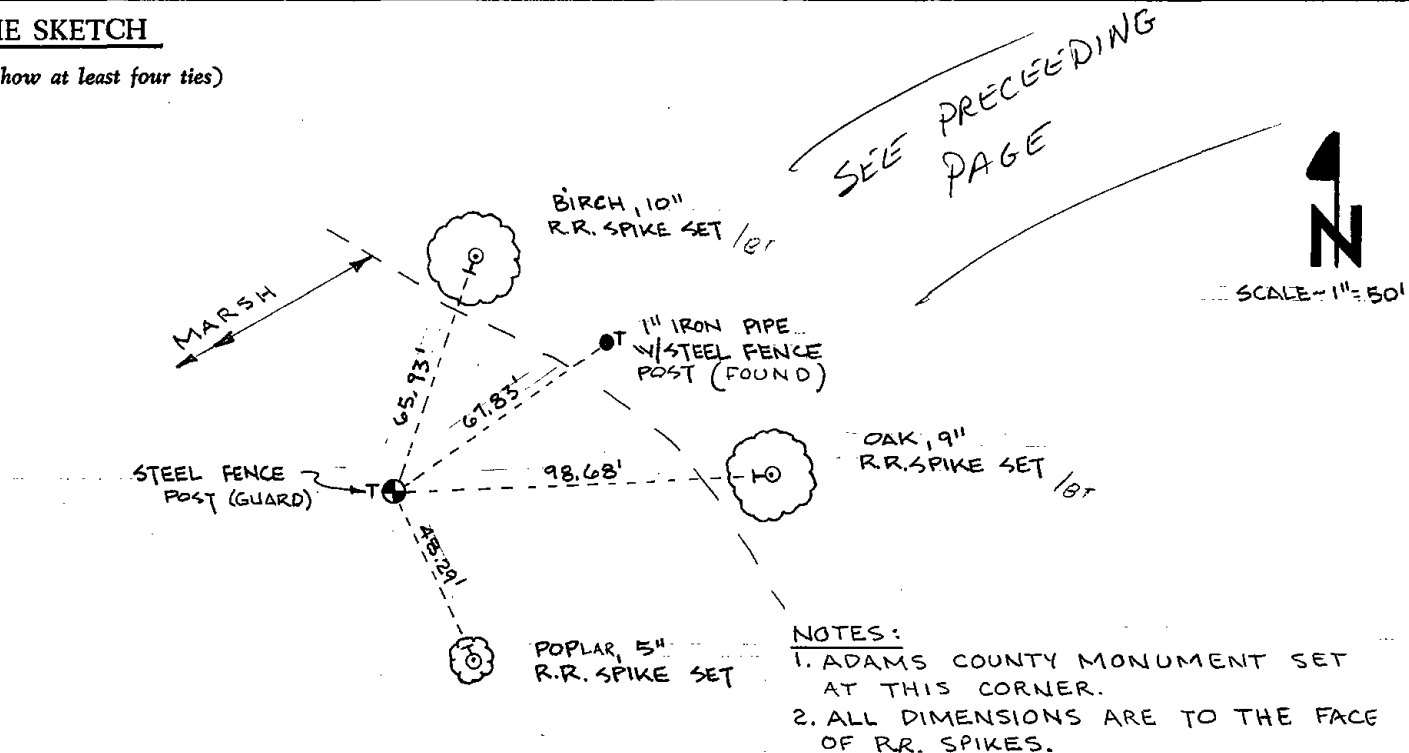 IE SKETCH
how at least four ties)
SEE PRECEEDING
PAGE
N
SCALE~1"=50'
BIRCH, 10"
R.R. SPIKE SET /BT
MARSH
1" IRON PIPE
W/STEEL FENCE
POST (FOUND)
T
65.93'
67.83'
OAK, 9"
R.R. SPIKE SET /BT
98.68'
STEEL FENCE
POST (GUARD)
T
48.29'
POPLAR, 5"
R.R. SPIKE SET
NOTES:
1. ADAMS COUNTY MONUMENT SET
AT THIS CORNER.
2. ALL DIMENSIONS ARE TO THE FACE
OF R.R. SPIKES.